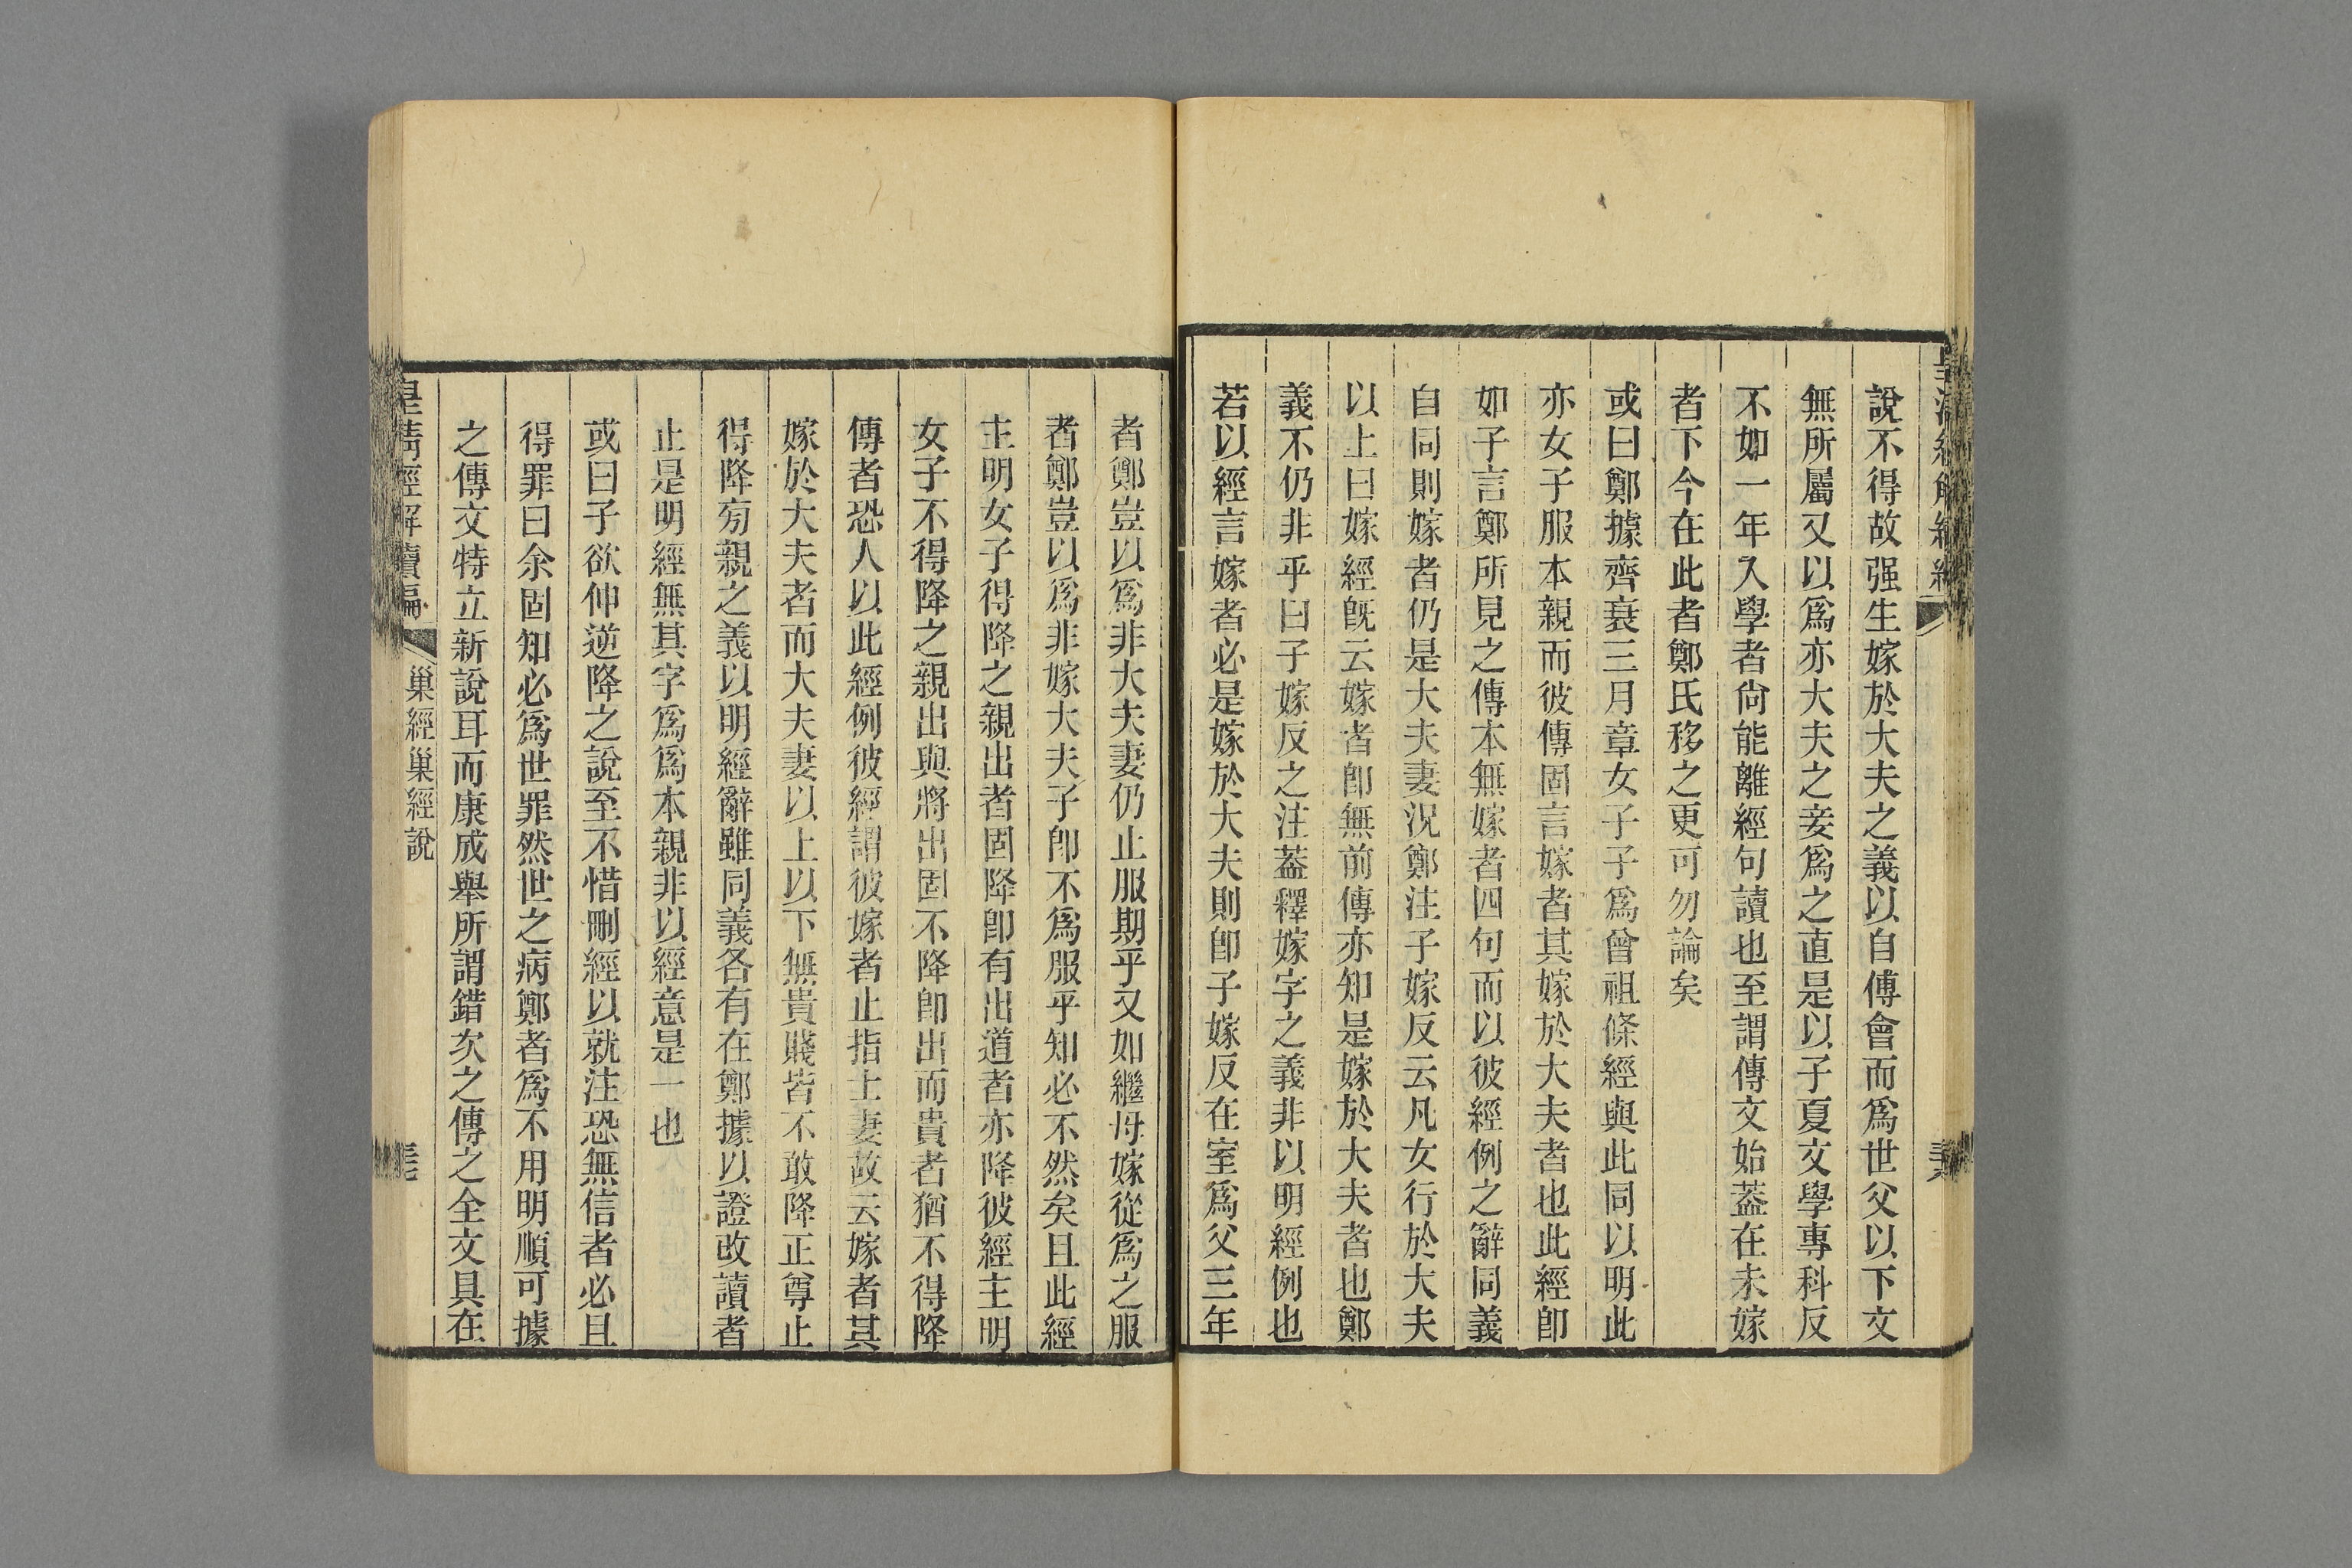 說不得故强生嫁於大夫之義以自傅會而爲世父以下文
無所屬又以爲亦大夫之妾爲之直是以子夏文學專科反
不如一年入學者尙能離經句讀也至謂傳文始蓋在未嫁
者下今在此者鄭氏移之更可勿論矣
或曰鄭據齊衰三月章女子子爲曾祖條經與此同以明此
亦女子服本親而彼傳固言嫁者其嫁於大夫者也此經卽
如子言鄭所見之傳本無嫁者四句而以彼經例之辭同義
自同則嫁者仍是大夫妻況鄭注子嫁反云凡女行於大夫
以上曰嫁經旣云嫁者卽無前傳亦知是嫁於大夫者也鄭
義不仍非乎曰子嫁反之注蓋釋嫁字之義非以明經例也
若以經言嫁者必是嫁於大夫則卽子嫁反在室爲父三年
者鄭豈以爲非大夫妻仍止服期乎又如繼母嫁從爲之服
者鄭豈以爲非嫁大夫子卽不爲服乎知必不然矣且此經
主明女子得降之親出者固降卽有出道者亦降彼經主明
女子不得降之親出與將出固不降卽出而貴者猶不得降
傳者恐人以此經例彼經謂彼嫁者止指士妻故云嫁者其
嫁於大夫者而大夫妻以上以下無貴賤皆不敢降正尊止
得降旁親之義以明經辭雖同義各有在鄭據以證改讀者
止是明經無其字爲爲本親非以經意是一也
或曰子欲伸逆降之說至不惜刪經以就注恐無信者必且
得罪曰余固知必爲世罪然世之病鄭者爲不用明順可據
之傳文特立新說耳而康成舉所謂錯次之傳之全文具在
皇淸經解續編
巢經巢經說